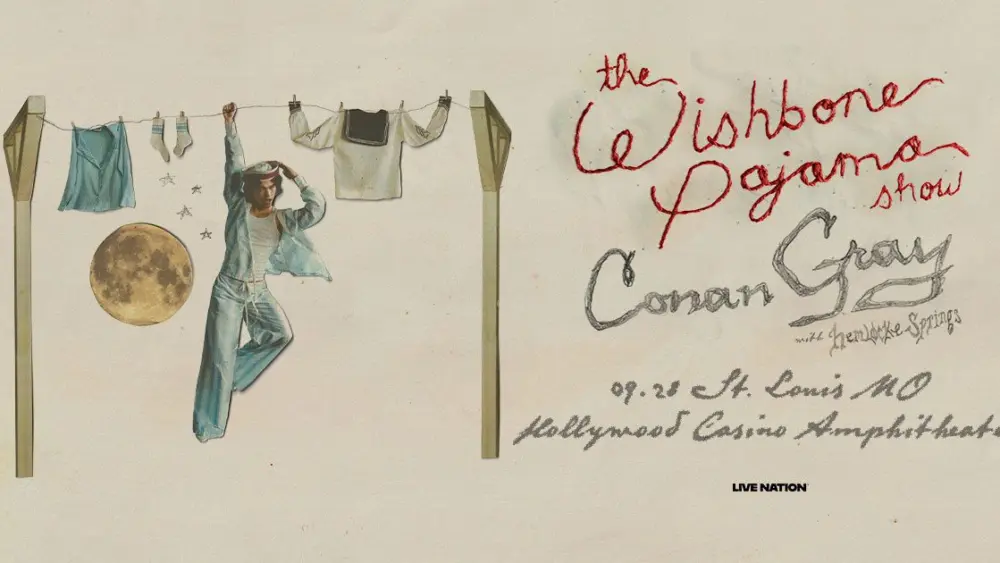 the
Wishbone
Pajama
show
Conan Gray
with Hemlocke Springs
09.28 St. Louis MO
Hollywood Casino Amphitheate
LIVE NATION